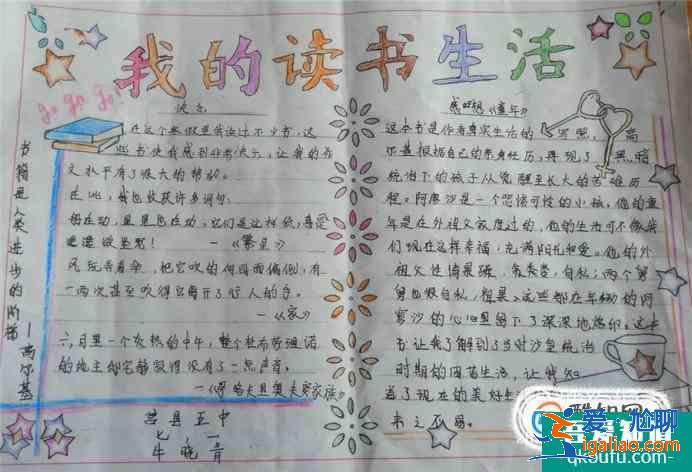 我的读书生活
go go go!
快乐
在这个寒假里我读过不少书，这
些书使我感到非常快乐，让我的作
文水平有了很大的帮助。
在此，我也收获许多词句：
——《繁星》
风玩弄着伞，把它吹的向四面偏倒，有
一两次甚至吹得它离开了行人的手。
——《家》
六月里一个炎热的中午，整个杜布罗温诺
的地主邸宅静寂得没有了一点声音。
莒县五中
七
牛晓
书籍是人类进步的阶梯
——高尔基
《童年》
这本书是作者真实生活的写照，高
尔基根据自己的亲身经历，再现了黑暗
统治下的孩子从觉醒至长大的苦难历
程。阿廖沙是一个悲惨可怜的小孩，他的童
年是在外祖父家度过的，他的生活可不像我
们现在这样幸福，充满阳光和爱。他的外
祖父性情暴躁、贪婪、自私；两个舅
舅也很自私，粗暴。这些都在年幼的阿
廖沙的心里留下了深深地烙印。这本
书让我了解到了当时沙皇统治
时期的困苦生活，让我知
道了现在的美好生
来之不易。
爱尬聊
igaliao.com